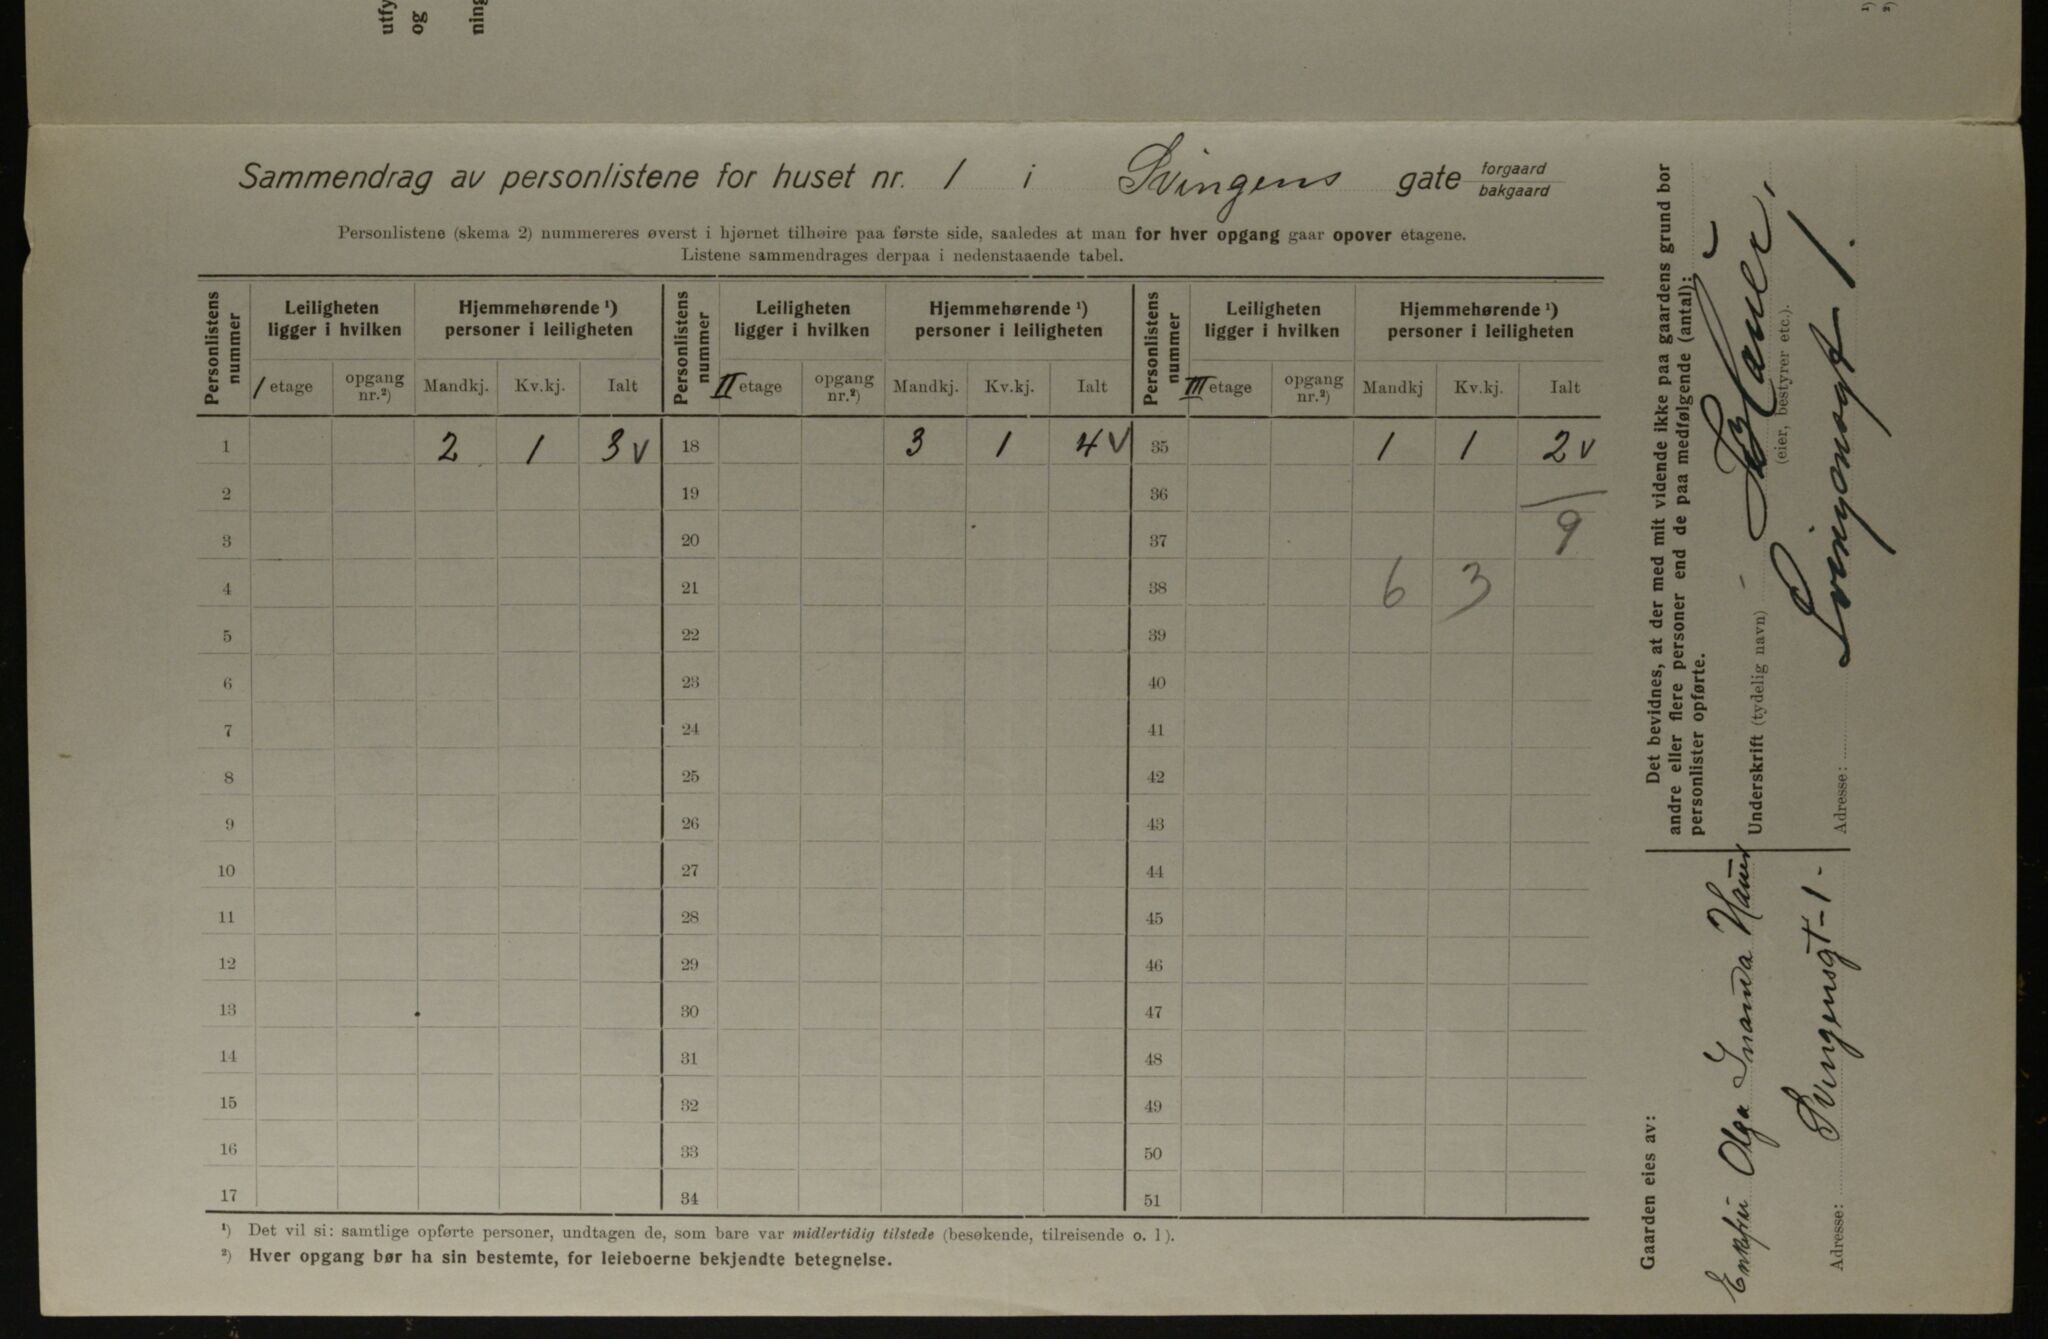 utfy
og
ning
¹)
²)
Sammendrag av personlistene for huset nr. 1 i Svingens gate forgaard
bakgaard
Personlistene (skema 2) nummereres øverst i hjørnet tilhøire paa første side, saaledes at man for hver opgang gaar opover etagene.
Listene sammendrages derpaa i nedenstaaende tabel.
Personlistens nummer | Leiligheten ligger i hvilken | Hjemmehørende ¹) personer i leiligheten | Personlistens nummer | Leiligheten ligger i hvilken | Hjemmehørende ¹) personer i leiligheten | Personlistens nummer | Leiligheten ligger i hvilken | Hjemmehørende ¹) personer i leiligheten
I etage | opgang nr.²) | Mandkj. | Kv.kj. | Ialt | II etage | opgang nr.²) | Mandkj. | Kv.kj. | Ialt | III etage | opgang nr.²) | Mandkj | Kv.kj. | Ialt
1 2 1 3 v 18 3 1 4 v 35 1 1 2 v
2 19 36
3 20 37 9
4 21 38 6 3
5 22 39
6 23 40
7 24 41
8 25 42
9 26 43
10 27 44
11 28 45
12 29 46
13 30 47
14 31 48
15 32 49
16 33 50
17 34 51
¹) Det vil si: samtlige opførte personer, undtagen de, som bare var midlertidig tilstede (besøkende, tilreisende o. l).
²) Hver opgang bør ha sin bestemte, for leieboerne bekjendte betegnelse.
Det bevidnes, at der med mit vidende ikke paa gaardens grund bor
andre eller flere personer end de paa medfølgende (antal):
personlister opførte.
Underskrift (tydelig navn) Hauer
(eier, bestyrer etc.).
Adresse: Svingensgt 1.
Gaarden eies av:
Enkefru Olga Hauer
Adresse: Svingensgt - 1 -